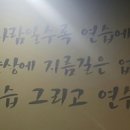 사람일수록 연습에
상에 지름길은 없
습 그리고 연